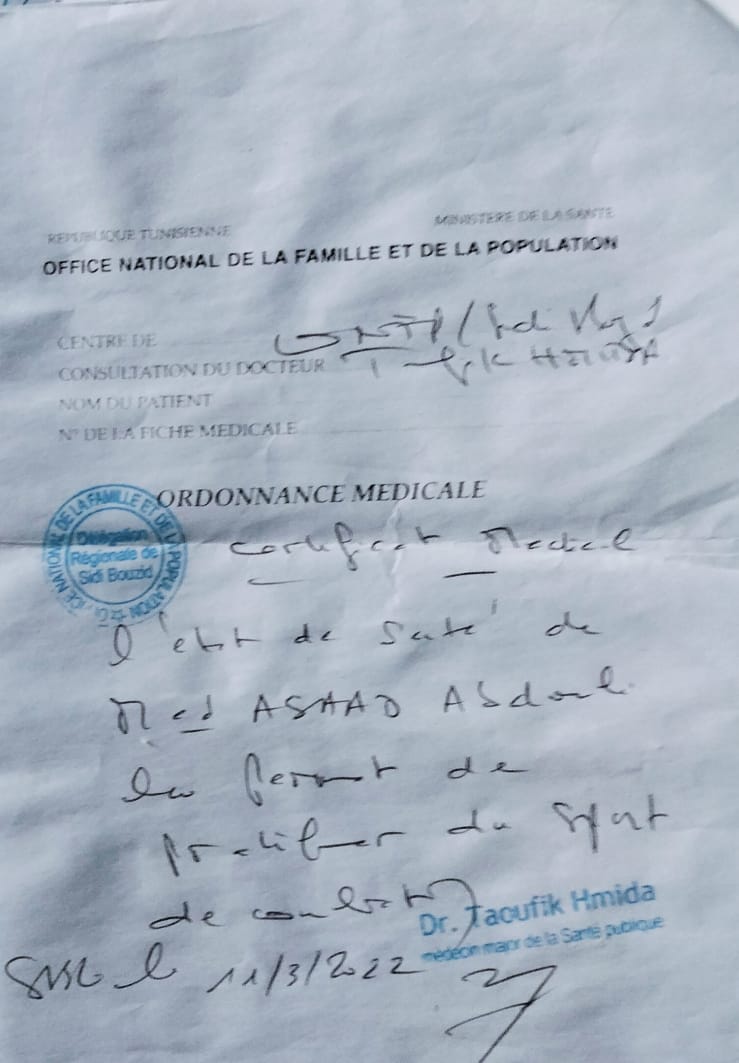 REPUBLIQUE TUNISIENNE
MINISTERE DE LA SANTE
OFFICE NATIONAL DE LA FAMILLE ET DE LA POPULATION
CENTRE DE
CONSULTATION DU DOCTEUR
NOM DU PATIENT
N° DE LA FICHE MEDICALE
ORDONNANCE MEDICALE
OFFICE NATIONAL DE LA FAMILLE ET DE LA POPULATION
Délégation
Régionale de
Sidi Bouzid
Certificat Medical
l'etat de santé de
Med ASAAD
lui permet de
pratiquer du sport
de combat
Dr. Taoufik Hmida
médecin major de la Santé publique
le 11/3/2022